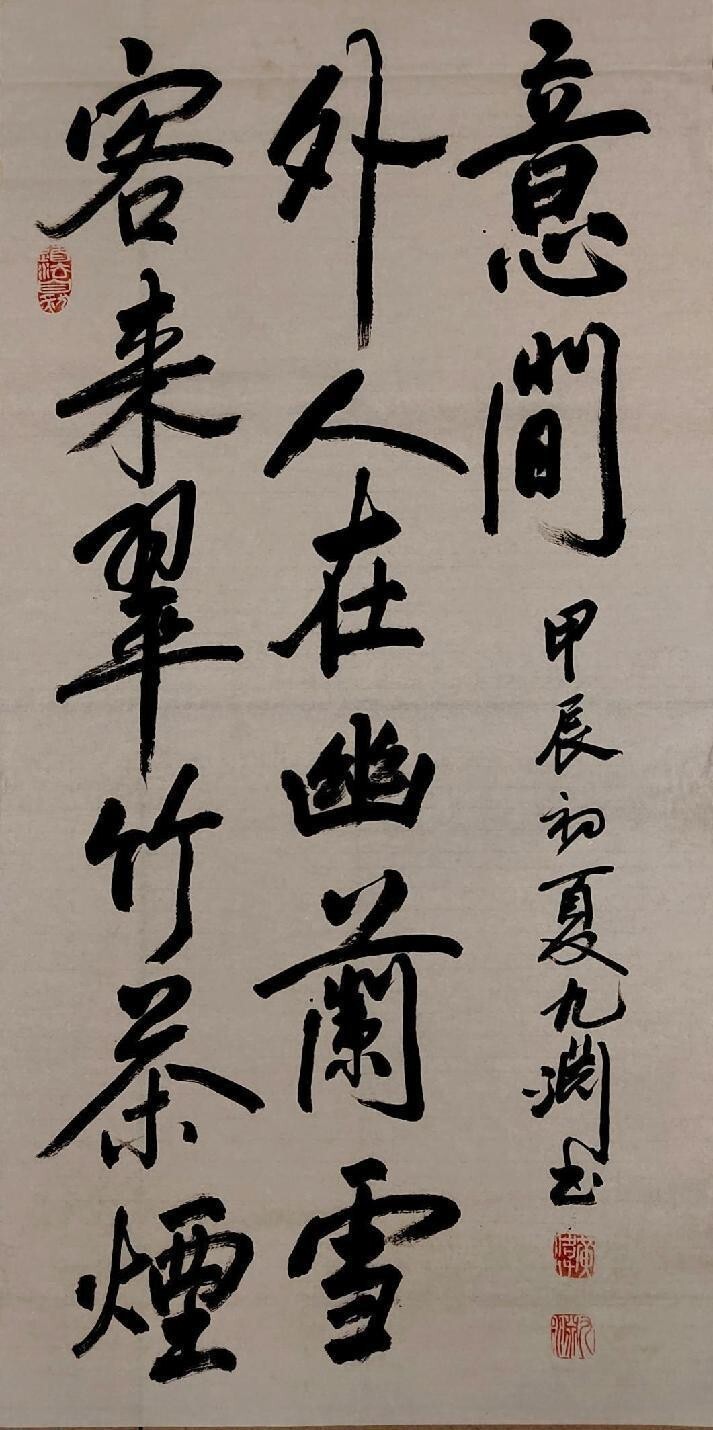 客来翠竹茶煙
外人在幽蘭雪
意間
甲辰初夏九淵书
道法自然